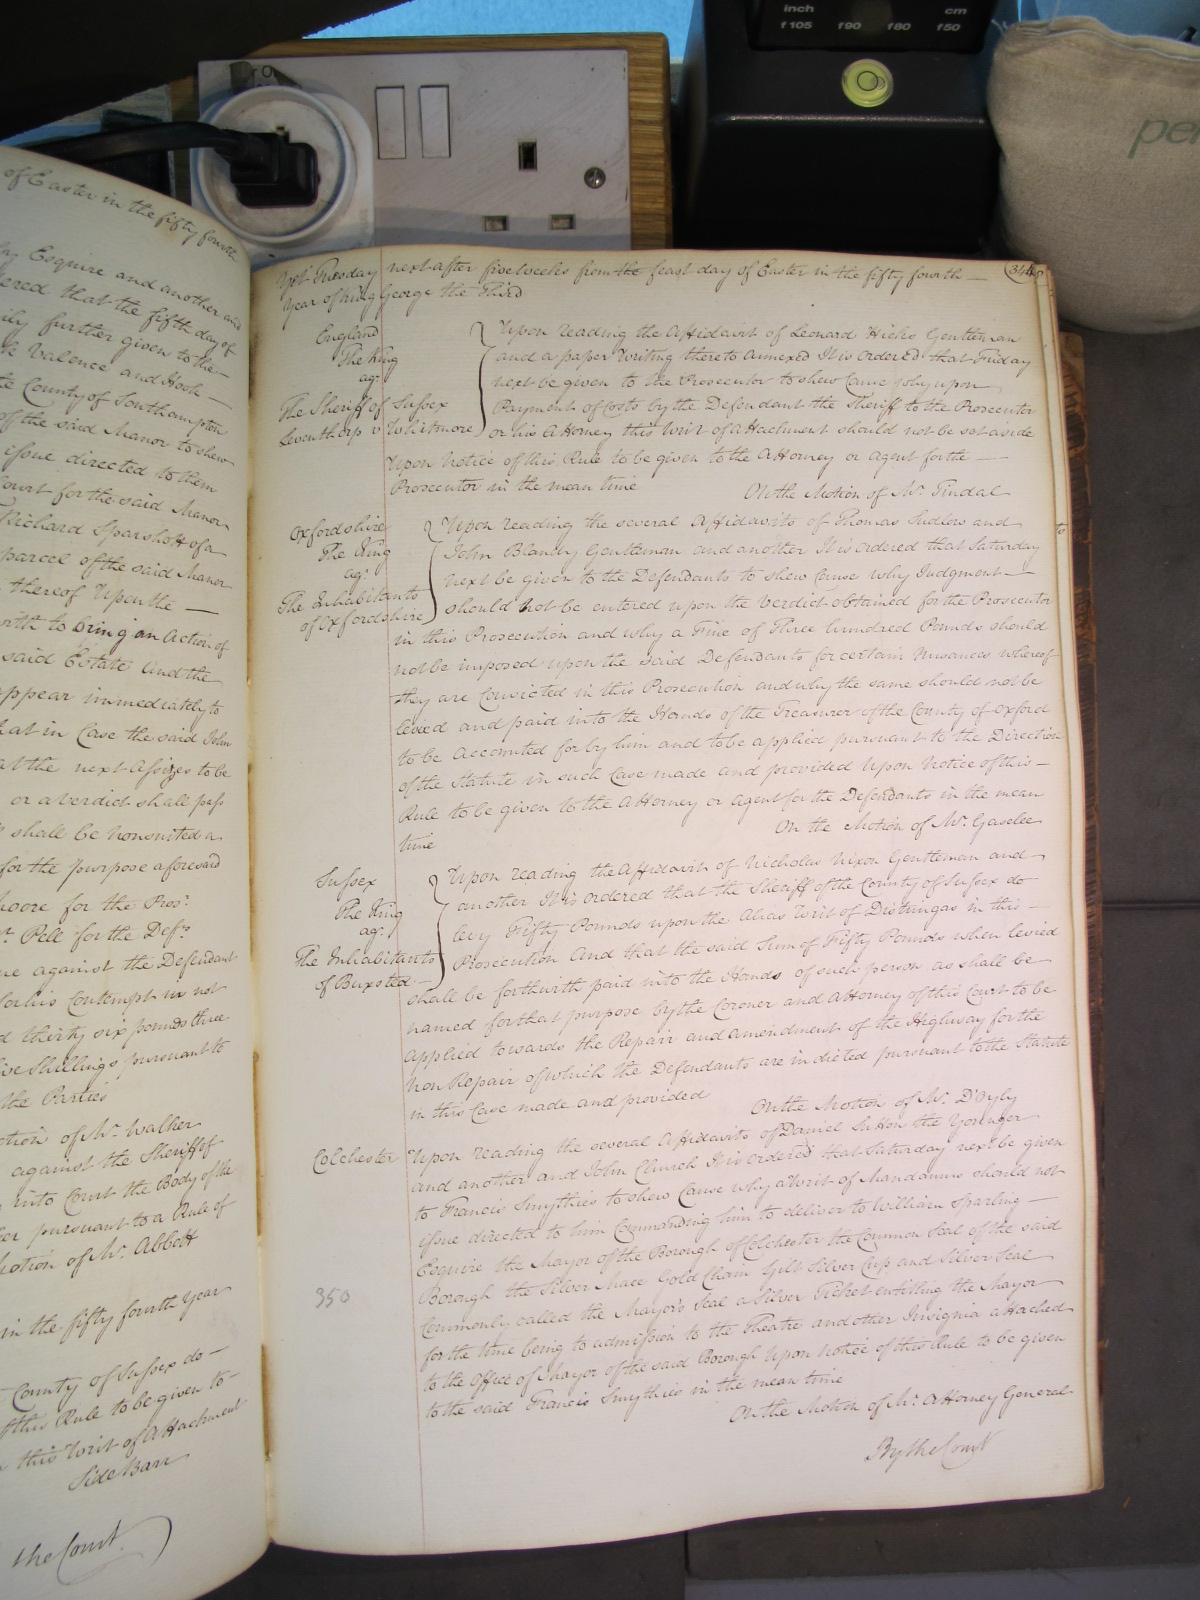 inch
cm
f105 f90 f80 f50
per
of Easter in the fifty fourth
Esquire and another and
ered that the fifth day of
ily further given to the
Valence and Hook
te County of Southampton
of the said Manor to shew
issue directed to them
Court for the said Manor
Richard Sparshott of a
parcel of the said Manor
thereof Upon the
orth to bring an Action of
said Estate And the
appear immediately to
hat in Case the said John
at the next Assizes to be
or a verdict shall pass
shall be Nonsuited a
for the purpose aforesaid
Moore for the Pros.r
Mr. Pell for the Def.t
ue against the Defendant
for his Contempt in not
d thirty six pounds three
ive Shillings pursuant to
the Parties
otion of Mr. Walker
against the Sheriff of
into Court the Body of the
er pursuant to a Rule of
Motion of Mr. Abbott
in the fifty fourth Year
County of Sussex do
this Rule to be given to
this Writ of Attachment
Side Barr
the Court
Yet Tuesday next after five weeks from the feast day of Easter in the fifty fourth
Year of King George the Third
England
The King
ag.t
The Sheriff of Sussex
Leventhorp v Whitmore
Upon reading the Affidavit of Leonard Hicks Gentleman
and a paper Writing thereto annexed It is Ordered that Friday
next be given to the Prosecutor to shew Cause why upon
Payment of Costs by the Defendant the Sheriff to the Prosecutor
or his Attorney this Writ of Attachment should not be set aside
Upon Notice of this Rule to be given to the Attorney or Agent for the
Prosecutor in the mean time
On the Motion of Mr. Tindal
Oxfordshire
The King
ag.t
The Inhabitants
of Oxfordshire
Upon reading the several Affidavits of Thomas Sudlow and
John Blandy Gentleman and another It is ordered that Saturday
next be given to the Defendants to shew Cause why Judgment
should not be entered upon the Verdict obtained for the Prosecutor
in this Prosecution and why a Fine of Three hundred Pounds should
not be imposed upon the said Defendants for certain Nusances whereof
they are Convicted in this Prosecution and why the same should not be
levied and paid into the Hands of the Treasurer of the County of Oxford
to be Accounted for by him and to be applied pursuant to the Direction
of the Statute in such Case made and provided Upon Notice of this
Rule to be given to the Attorney or Agent for the Defendants in the mean
time
On the Motion of Mr. Gaselee
Sussex
The King
ag.t
The Inhabitants
of Buxsted
Upon reading the Affidavit of Nicholas Nixon Gentleman and
another It is ordered that the Sheriff of the County of Sussex do
levy Fifty Pounds upon the Alias Writ of Distringas in this
Prosecution And that the said Sum of Fifty Pounds when levied
shall be forthwith paid into the Hands of such person as shall be
named for that purpose by the Coroner and Attorney of this Court to be
applied towards the Repair and amendment of the Highway for the
Non Repair of which the Defendants are indicted pursuant to the Statute
in this Case made and provided
On the Motion of Mr. D'Oyly
Colchester
Upon reading the several Affidavits of Daniel Sutton the Younger
and another and John Church It is ordered that Saturday next be given
to Francis Smythies to shew Cause why a Writ of Mandamus should not
issue directed to him Commanding him to deliver to William Sparling
Esquire the Mayor of the Borough of Colchester the Common Seal of the said
Borough the Silver Mace Gold Chain Gilt Silver Cup and Silver Seal
Commonly called the Mayor's Seal a Silver Ticket entitling the Mayor
for the time being to admission to the Theatre and other Insignia attached
to the Office of Mayor of the said Borough Upon Notice of this Rule to be given
to the said Francis Smythies in the mean time
On the Motion of Mr. Attorney General
By the Court
350